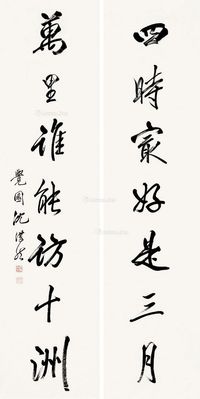 四時最好是三月
萬里誰能訪十洲
覺園沈淇泉